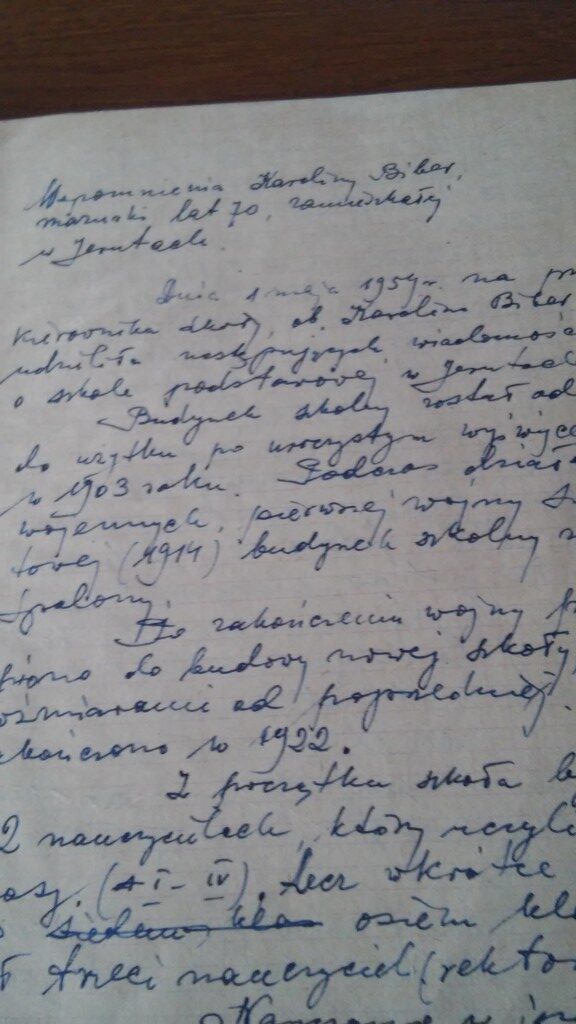 Wspomnienia Karoliny Biber,
mazurki lat 70, zamieszkałej
w Jerutach.
Dnia 4 maja 1954 r. na
kierownika szkoły, ob. Karolina Biber
udzieliła następujących wiadomości
o szkole podstawowej w Jerutach
Budynek szkolny został od
do użytku po uroczystym wyświęce
w 1903 roku. Podczas dział
wojennych, pierwszej wojny
towej (1914) budynek szkolny
spalony.
Po zakończeniu wojny
piono do budowy nowej szkoły,
ozmiarami od poprzedniej.
kończono w 1922.
Z początku szkoła b
2 nauczycielach, który uczyli
asy. (I-IV). Lecz wkrótce
siedem klas osiem kla
ł trzeci nauczyciel (rektor